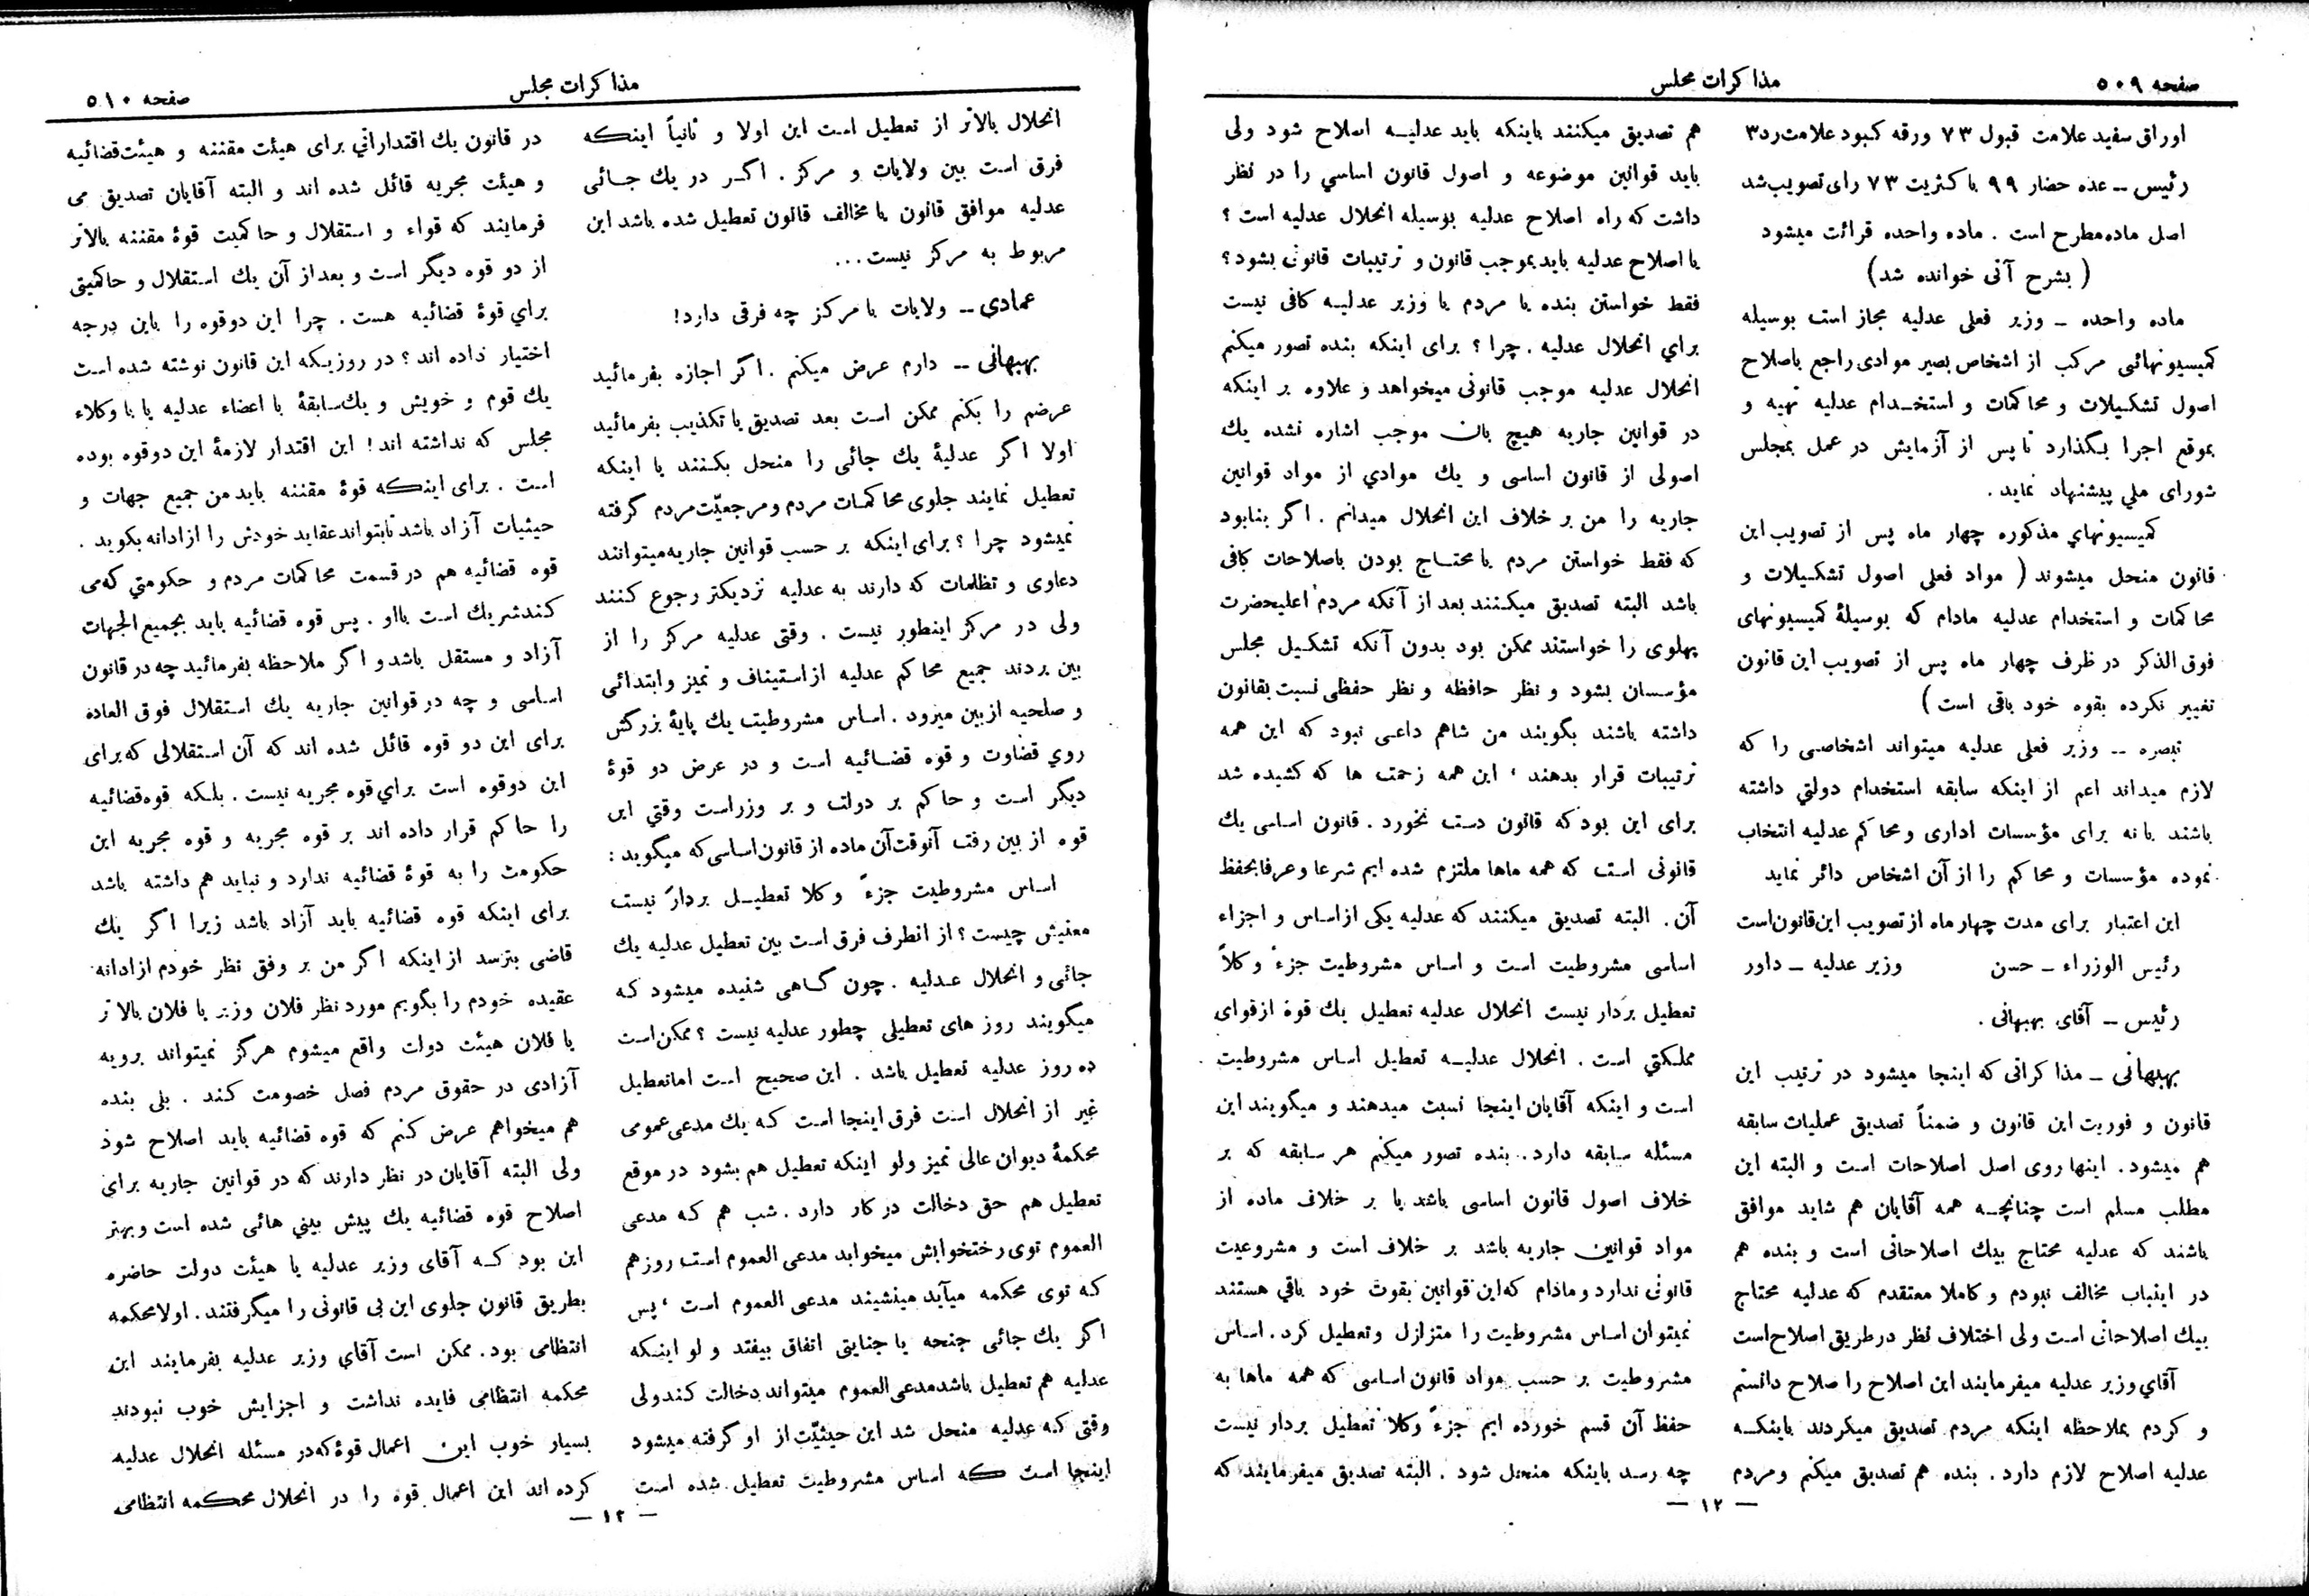 صفحه ۵۰۹
مذاکرات مجلس
اوراق سفید علامت قبول ۷۳ ورقه کبود علامت رد ۳
رئیس ــ عده حضار ۹۹ با کثریت ۷۳ رای تصویب شد
اصل ماده مطرح است . ماده واحده قرائت میشود
( بشرح آتی خوانده شد)
ماده واحده ــ وزیر فعلی عدلیه مجاز است بوسیله
کمیسیونهائی مرکب از اشخاص بصیر موادی راجع باصلاح
اصول تشکیلات و محاکمات و استخدام عدلیه تهیه و
بموقع اجرا بگذارد تا پس از آزمایش در عمل بمجلس
شورای ملی پیشنهاد نماید .
کمیسیونهای مذکوره چهار ماه پس از تصویب این
قانون منحل میشوند ( مواد فعلی اصول تشکیلات و
محاکمات و استخدام عدلیه مادام که بوسیلهٔ کمیسیونهای
فوق الذکر در ظرف چهار ماه پس از تصویب این قانون
تغییر نکرده بقوه خود باقی است )
تبصره ــ وزیر فعلی عدلیه میتواند اشخاصی را که
لازم میداند اعم از اینکه سابقه استخدام دولتی داشته
باشند یا نه برای مؤسسات اداری و محاکم عدلیه انتخاب
نموده مؤسسات و محاکم را از آن اشخاص دائر نماید
این اعتبار برای مدت چهار ماه از تصویب این قانون است
رئیس الوزراء ــ حسن وزیر عدلیه ــ داور
رئیس ــ آقای بهبهانی .
بهبهانی ــ مذاکراتی که اینجا میشود در ترتیب این
قانون و فوریت این قانون و ضمناً تصدیق عملیات سابقه
هم میشود . اینها روی اصل اصلاحات است و البته این
مطلب مسلم است چنانچه همه آقایان هم شاید موافق
باشند که عدلیه محتاج بیك اصلاحاتی است و بنده هم
در اینباب مخالف نبودم و کاملا معتقدم که عدلیه محتاج
بیك اصلاحاتی است ولی اختلاف نظر در طریق اصلاح است
آقای وزیر عدلیه میفرمایند این اصلاح را صلاح دانستم
و کردم بملاحظه اینکه مردم تصدیق میکردند باینکه
عدلیه اصلاح لازم دارد . بنده هم تصدیق میکنم و مردم
هم تصدیق میکنند باینکه باید عدلیه اصلاح شود ولی
باید قوانین موضوعه و اصول قانون اساسی را در نظر
داشت که راه اصلاح عدلیه بوسیله انحلال عدلیه است ؟
یا اصلاح عدلیه باید بموجب قانون و ترتیبات قانونی بشود ؟
فقط خواستن بنده یا مردم یا وزیر عدلیه کافی نیست
برای انحلال عدلیه . چرا ؟ برای اینکه بنده تصور میکنم
انحلال عدلیه موجب قانونی میخواهد و علاوه بر اینکه
در قوانین جاریه هیچ بان موجب اشاره نشده یك
اصولی از قانون اساسی و یك موادی از مواد قوانین
جاریه را من بر خلاف این انحلال میدانم . اگر بنا بود
که فقط خواستن مردم یا محتاج بودن باصلاحات کافی
باشد البته تصدیق میکنند بعد از آنکه مردم اعلیحضرت
پهلوی را خواستند ممکن بود بدون آنکه تشکیل مجلس
مؤسسان بشود و نظر حافظه و نظر حفظی نسبت بقانون
داشته باشند بگویند من شاهم داعی نبود که این همه
ترتیبات قرار بدهند ، این همه زحمت ها که کشیده شد
برای این بود که قانون دست نخورد . قانون اساسی یك
قانونی است که همه ماها ملتزم شده ایم شرعا و عرفا بحفظ
آن . البته تصدیق میکنند که عدلیه یکی از اساس و اجزاء
اساسی مشروطیت است و اساس مشروطیت جزءً و کلاً
تعطیل بردار نیست انحلال عدلیه تعطیل یك قوهٔ از قوای
مملکتی است . انحلال عدلیه تعطیل اساس مشروطیت
است و اینکه آقایان اینجا نسبت میدهند و میگویند این
مسئله سابقه دارد . بنده تصور میکنم هر سابقه که بر
خلاف اصول قانون اساسی باشد یا بر خلاف ماده از
مواد قوانین جاریه باشد بر خلاف است و مشروعیت
قانونی ندارد و مادام که این قوانین بقوت خود باقی هستند
نمیتوان اساس مشروطیت را متزلزل و تعطیل کرد . اساس
مشروطیت بر حسب مواد قانون اساسی که همه ماها به
حفظ آن قسم خورده ایم جزءً و کلاً تعطیل بردار نیست
چه رسد باینکه منحل شود . البته تصدیق میفرمایند که
ــ ۱۲ ــ
مذاکرات مجلس
صفحه ۵۱۰
انحلال بالاتر از تعطیل است این اولا و ثانیاً اینکه
فرق است بین ولایات و مرکز . اگر در یك جائی
عدلیه موافق قانون یا مخالف قانون تعطیل شده باشد این
مربوط به مرکز نیست ...
عمادی ــ ولایات با مرکز چه فرقی دارد !
بهبهانی ــ دارم عرض میکنم . اگر اجازه بفرمائید
عرضم را بکنم ممکن است بعد تصدیق یا تکذیب بفرمائید
اولا اگر عدلیهٔ یك جائی را منحل بکنند یا اینکه
تعطیل نمایند جلوی محاکمات مردم و مرجعیّت مردم گرفته
نمیشود چرا ؟ برای اینکه بر حسب قوانین جاریه میتوانند
دعاوی و تظلمات که دارند به عدلیه نزدیکتر رجوع کنند
ولی در مرکز اینطور نیست . وقتی عدلیه مرکز را از
بین بردند جمیع محاکم عدلیه از استیناف و تمیز و ابتدائی
و صلحیه از بین میرود . اساس مشروطیت یك پایهٔ بزرگش
روی قضاوت و قوه قضائیه است و در عرض دو قوهٔ
دیگر است و حاکم بر دولت و بر وزراست وقتی این
قوه از بین رفت آنوقت آن ماده از قانون اساسی که میگوید :
اساس مشروطیت جزءً وکلا تعطیل بردار نیست
معنیش چیست ؟ از انطرف فرق است بین تعطیل عدلیه یك
جائی و انحلال عدلیه . چون گاهی شنیده میشود که
میگویند روز های تعطیلی چطور عدلیه نیست ؟ ممکن است
ده روز عدلیه تعطیل باشد . این صحیح است اما تعطیل
غیر از انحلال است فرق اینجا است که یك مدعی عمومی
محکمهٔ دیوان عالی تمیز ولو اینکه تعطیل هم بشود در موقع
تعطیل هم حق دخالت در کار دارد . شب هم که مدعی
العموم توی رختخوابش میخوابد مدعی العموم است روز هم
که توی محکمه میآید مینشیند مدعی العموم است ، پس
اگر یك جائی جنحه یا جنایتی اتفاق بیفتد و لو اینکه
عدلیه هم تعطیل باشد مدعی العموم میتواند دخالت کند ولی
وقتی که عدلیه منحل شد این حیثیّت از او گرفته میشود
اینجا است که اساس مشروطیت تعطیل شده است
در قانون یك اقتداراتی برای هیئت مقننه و هیئت قضائیه
و هیئت مجریه قائل شده اند و البته آقایان تصدیق می
فرمایند که قواء و استقلال و حاکمیت قوهٔ مقننه بالاتر
از دو قوه دیگر است و بعد از آن یك استقلال و حاکمیتی
برای قوهٔ قضائیه هست . چرا این دو قوه را باین درجه
اختیار داده اند ؟ در روزیکه این قانون نوشته شده است
یك قوم و خویش و یك سابقهٔ با اعضاء عدلیه یا با وکلاء
مجلس که نداشته اند ! این اقتدار لازمهٔ این دو قوه بوده
است . برای اینکه قوهٔ مقننه باید من جمیع جهات و
حیثیات آزاد باشد تا بتواند عقاید خودش را ازادانه بگوید .
قوه قضائیه هم در قسمت محاکمات مردم و حکومتی که می
کند شریك است با او . پس قوه قضائیه باید بجمیع الجهات
آزاد و مستقل باشد و اگر ملاحظه بفرمائید چه در قانون
اساسی و چه در قوانین جاریه یك استقلال فوق العاده
برای این دو قوه قائل شده اند که آن استقلالی که برای
این دو قوه است برای قوه مجریه نیست . بلکه قوه قضائیه
را حاکم قرار داده اند بر قوه مجریه و قوه مجریه این
حکومت را به قوهٔ قضائیه ندارد و نباید هم داشته باشد
برای اینکه قوه قضائیه باید آزاد باشد زیرا اگر یك
قاضی بترسد از اینکه اگر من بر وفق نظر خودم ازادانه
عقیده خودم را بگویم مورد نظر فلان وزیر یا فلان بالاتر
یا فلان هیئت دولت واقع میشوم هرگز نمیتواند برویه
آزادی در حقوق مردم فصل خصومت کند . بلی بنده
هم میخواهم عرض کنم که قوه قضائیه باید اصلاح شود
ولی البته آقایان در نظر دارند که در قوانین جاریه برای
اصلاح قوه قضائیه یك پیش بینی هائی شده است و بهتر
این بود که آقای وزیر عدلیه یا هیئت دولت حاضره
بطریق قانون جلوی این بی قانونی را میگرفتند . اولا محکمه
انتظامی بود . ممکن است آقای وزیر عدلیه بفرمایند این
محکمه انتظامی فایده نداشت و اجزایش خوب نبودند
بسیار خوب این اعمال قوهٔ که در مسئله انحلال عدلیه
کرده اند این اعمال قوه را در انحلال محکمه انتظامی
ــ ۱۲ ــ